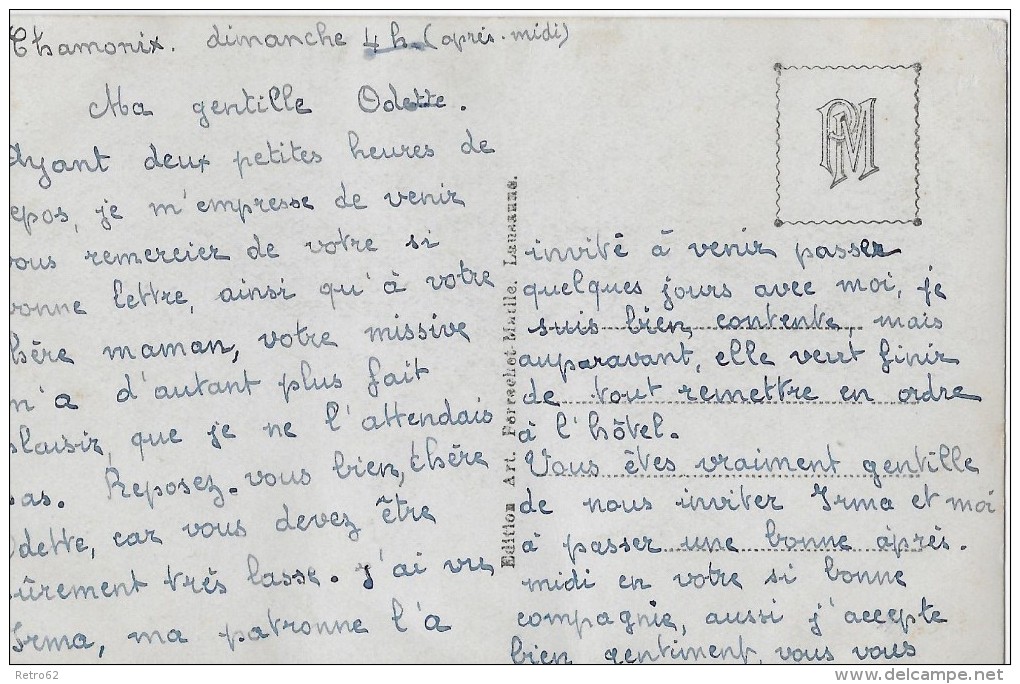 Chamonix. dimanche 4 h. (après-midi)
Ma gentille Odette.
Ayant deux petites heures de
epos, je m'empresse de venir
vous remercier de votre si
bonne lettre, ainsi qu'à votre
chère maman, votre missive
m'a d'autant plus fait
plaisir, que je ne l'attendais
pas. Reposez-vous bien, chère
Odette, car vous devez être
sûrement très lasse. J'ai vu
Irma, ma patronne l'a
invité à venir passer
quelques jours avec moi, je
suis bien contente, mais
auparavant, elle veut finir
de tout remettre en ordre
à l'hôtel.
Vous êtes vraiment gentille
de nous inviter Irma et moi
à passer une bonne après-
midi en votre si bonne
compagnie, aussi j'accepte
bien gentiment, vous vous
Edition Art. Perrochet Matile. Lausanne.
PM
Retro62
delcampe.net